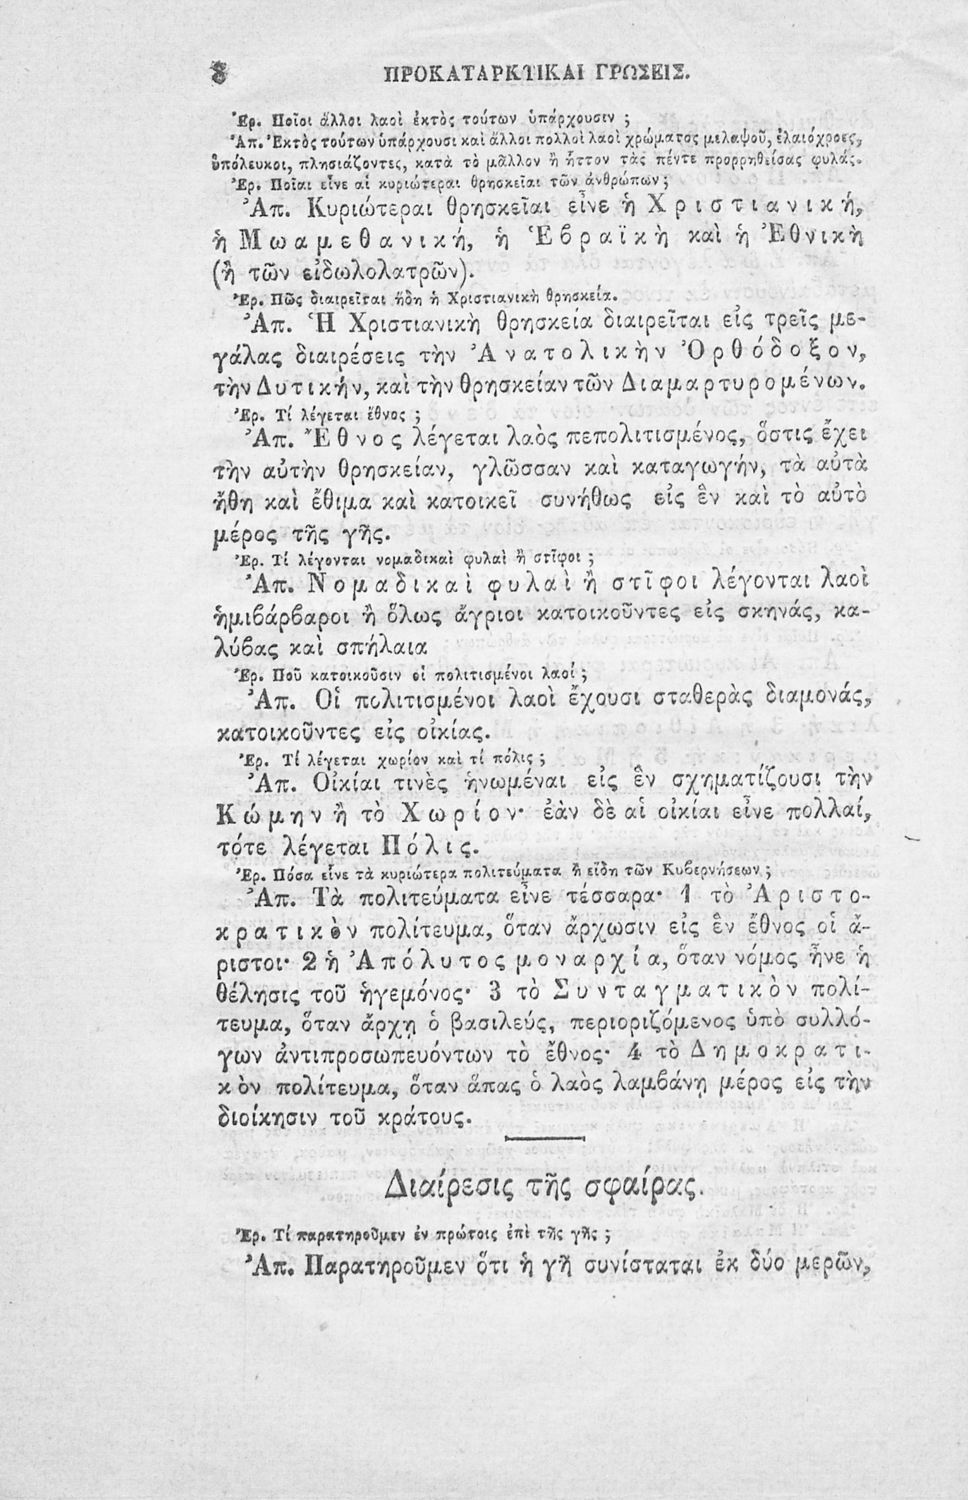 8 ΠΡΟΚΑΤΑΡΚΤΙΚΑΙ ΓΡΩΣΕΙΣ.
Ἐρ. Ποῖοι ἄλλοι λαοὶ ἐκτὸς τούτων ὑπάρχουσιν ;
Ἀπ. Ἐκτὸς τούτων ὑπάρχουσι καὶ ἄλλοι πολλοὶ λαοὶ χρώματος μελαψοῦ, ἐλαιόχροες,
ὑπόλευκοι, πλησιάζοντες, κατὰ τὸ μᾶλλον ἢ ἧττον τὰς πέντε προρρηθείσας φυλάς.
Ἐρ. Ποῖαι εἶνε αἱ κυριώτεραι θρησκεῖαι τῶν ἀνθρώπων ;
Ἀπ. Κυριώτεραι θρησκεῖαι εἶνε ἡ Χριστιανική,
ἡ Μωαμεθανική, ἡ Ἑβραϊκὴ καὶ ἡ Ἐθνικὴ
(ἢ τῶν εἰδωλολατρῶν).
Ἐρ. Πῶς διαιρεῖται ἤδη ἡ Χριστιανικὴ θρησκεία.
Ἀπ. Ἡ Χριστιανικὴ θρησκεία διαιρεῖται εἰς τρεῖς με-
γάλας διαιρέσεις τὴν Ἀνατολικὴν Ὀρθόδοξον,
τὴν Δυτικήν, καὶ τὴν θρησκείαν τῶν Διαμαρτυρομένων.
Ἐρ. Τί λέγεται ἔθνος ;
Ἀπ. Ἔθνος λέγεται λαὸς πεπολιτισμένος, ὅστις ἔχει
τὴν αὐτὴν θρησκείαν, γλῶσσαν καὶ καταγωγήν, τὰ αὐτὰ
ἤθη καὶ ἔθιμα καὶ κατοικεῖ συνήθως εἰς ἓν καὶ τὸ αὐτὸ
μέρος τῆς γῆς.
Ἐρ. Τί λέγονται νομαδικαὶ φυλαὶ ἢ στῖφοι ;
Ἀπ. Νομαδικαὶ φυλαὶ ἢ στῖφοι λέγονται λαοὶ
ἡμιβάρβαροι ἢ ὅλως ἄγριοι κατοικοῦντες εἰς σκηνάς, κα-
λύβας καὶ σπήλαια
Ἐρ. Ποῦ κατοικοῦσιν οἱ πολιτισμένοι λαοί ;
Ἀπ. Οἱ πολιτισμένοι λαοὶ ἔχουσι σταθερὰς διαμονάς,
κατοικοῦντες εἰς οἰκίας.
Ἐρ. Τί λέγεται χωρίον καὶ τί πόλις ;
Ἀπ. Οἰκίαι τινὲς ἡνωμέναι εἰς ἓν σχηματίζουσι τὴν
Κώμην ἢ τὸ Χωρίον· ἐὰν δὲ αἱ οἰκίαι εἶνε πολλαί,
τότε λέγεται Πόλις.
Ἐρ. Πόσα εἶνε τὰ κυριώτερα πολιτεύματα ἢ εἴδη τῶν Κυβερνήσεων ;
Ἀπ. Τὰ πολιτεύματα εἶνε τέσσαρα· 1 τὸ Ἀριστο-
κρατικὸν πολίτευμα, ὅταν ἄρχωσιν εἰς ἓν ἔθνος οἱ ἄ-
ριστοι· 2 ἡ Ἀπόλυτος μοναρχία, ὅταν νόμος ἦνε ἡ
θέλησις τοῦ ἡγεμόνος· 3 τὸ Συνταγματικὸν πολί-
τευμα, ὅταν ἄρχῃ ὁ βασιλεύς, περιοριζόμενος ὑπὸ συλλό-
γων ἀντιπροσωπευόντων τὸ ἔθνος· 4 τὸ Δημοκρατι-
κὸν πολίτευμα, ὅταν ἅπας ὁ λαὸς λαμβάνῃ μέρος εἰς τὴν
διοίκησιν τοῦ κράτους.
Διαίρεσις τῆς σφαίρας.
Ἐρ. Τί παρατηροῦμεν ἐν πρώτοις ἐπὶ τῆς γῆς ;
Ἀπ. Παρατηροῦμεν ὅτι ἡ γῆ συνίσταται ἐκ δύο μερῶν,